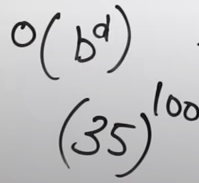 O(b^d)
(35)^100